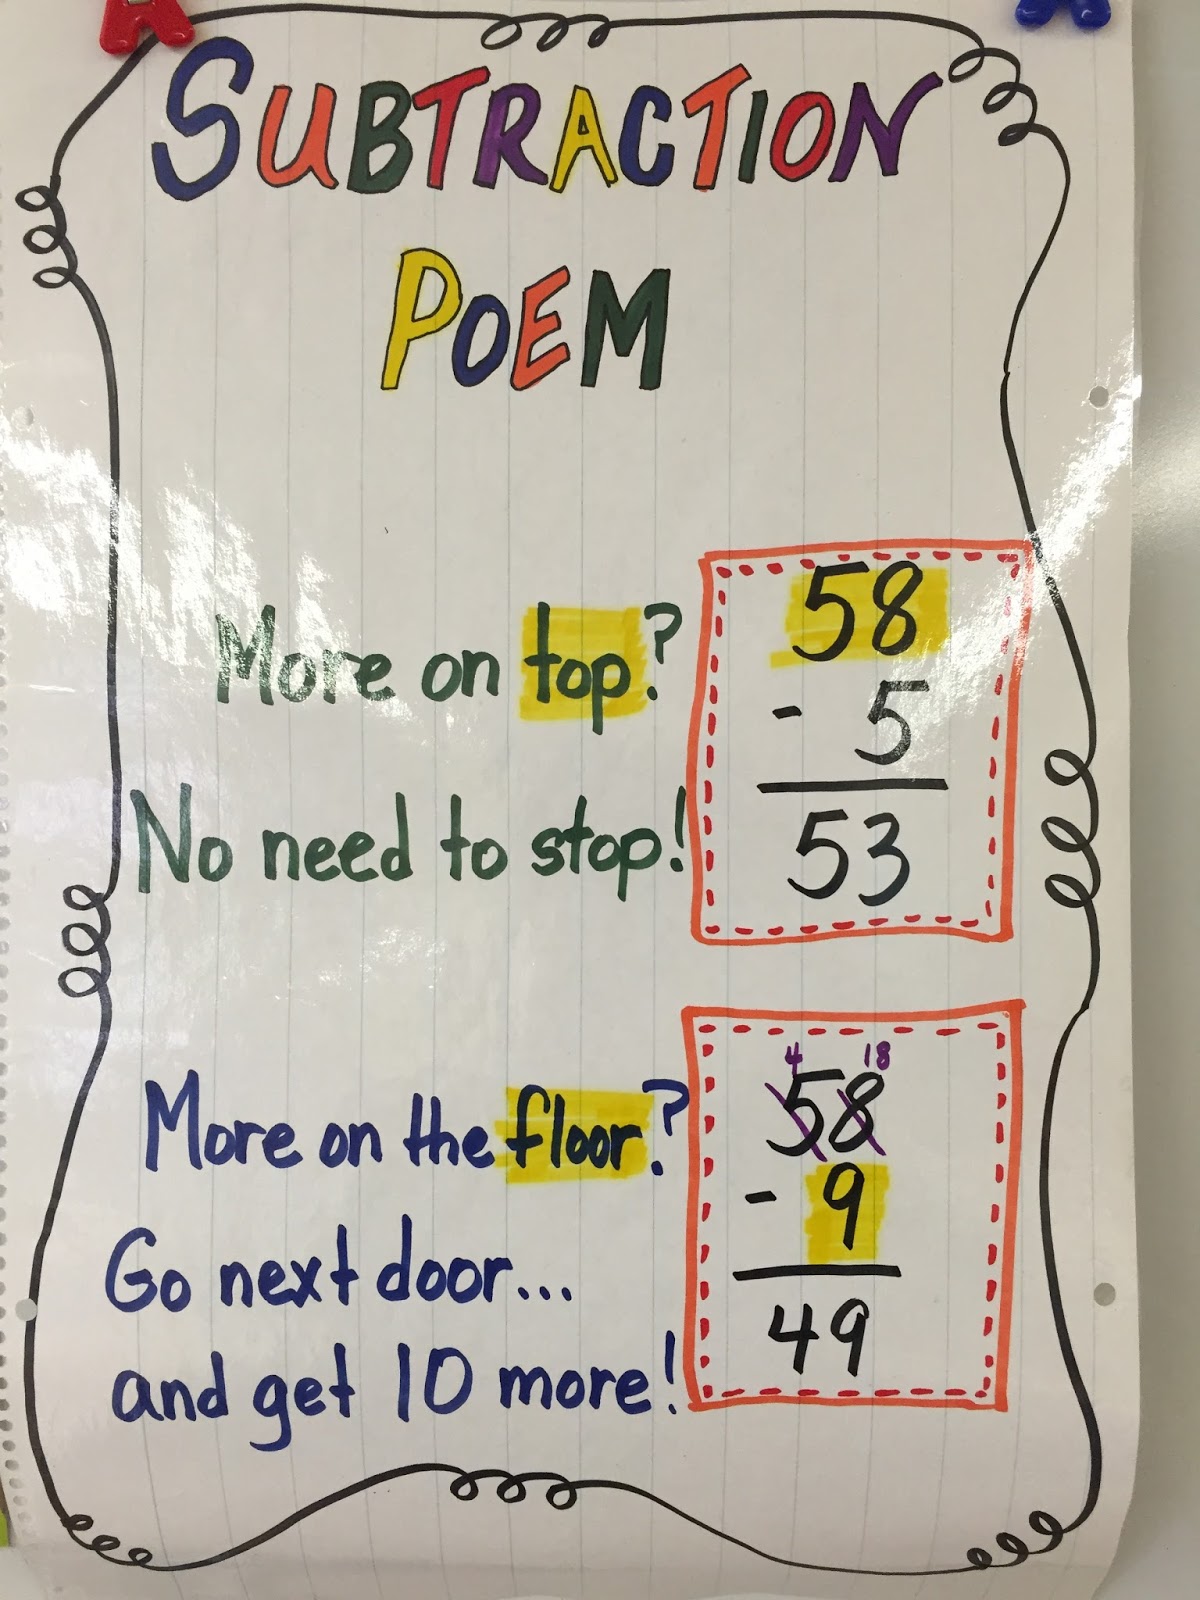 SUBTRACTION
POEM
More on top?
No need to stop!
58
- 5
53
More on the floor?
Go next door...
and get 10 more!
4 18
58
- 9
49